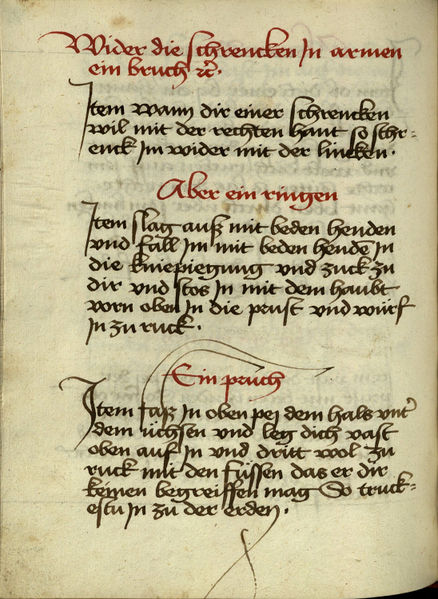 Wider die schrencken in armen
ein bruch rc.
Item wann dir einer schrencken
wil mit der rechten hant so schr-
enck im wider mit der lincken.
Aber ein ringen
Item slag auß mit beden henden
vnd fall im mit beden hende in
die kniepiegung vnd zuck zu
dir vnd stos in mit dem haubt
vorn oben in die prust vnd würf
in zu ruck.
Ein prüch
Item faß in oben pei dem hals vnter
dem üchsen vnd leg dich vast
oben auf in vnd dritt wol zu
ruck mit den füssen das er dir
keinen begreiffen mag So truck-
estu in zu der erden.